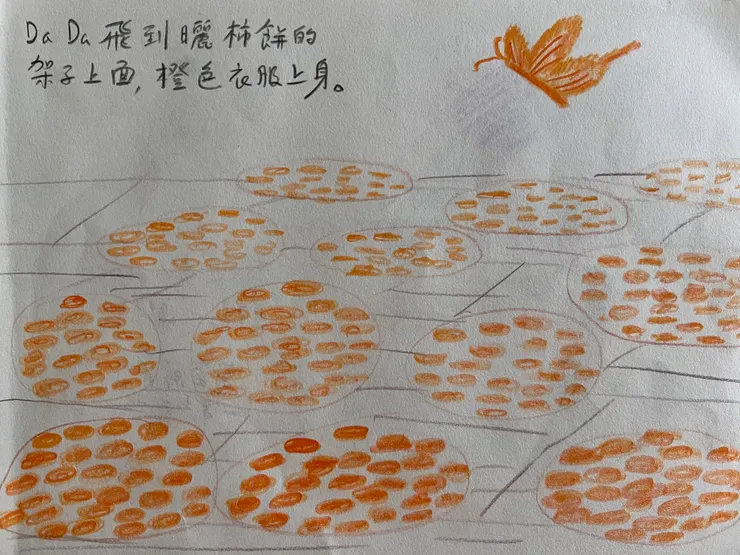 Da Da 飛到曬柿餅的
架子上面,橙色衣服上身。